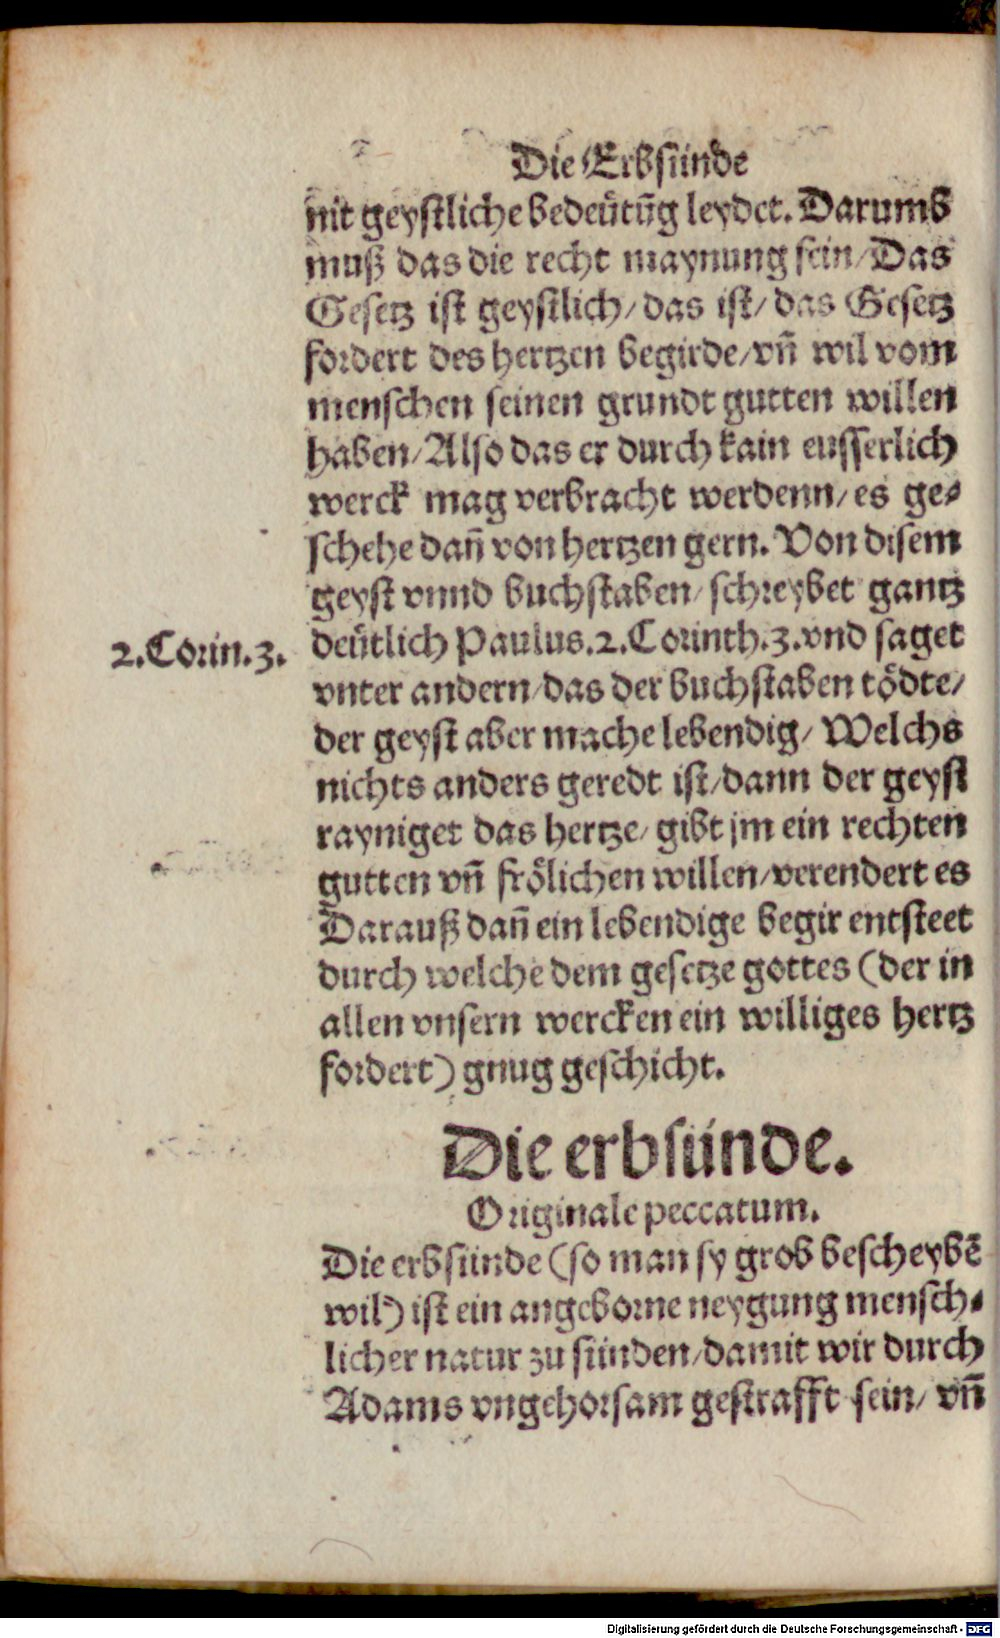 Die Erbsünde
nit geystliche bedeütūg leydet. Darumb
muß das die recht maynung sein/ Das
Gesetz ist geystlich/ das ist/ das Gesetz
fordert des hertzen begirde/ vn̄ wil vom
menschen seinen grundt gutten willen
haben/ Also das er durch kain eusserlich
werck mag verbracht werdenn/ es ge-
schehe dan̄ von hertzen gern. Von disem
geyst vnnd buchstaben/ schreybet gantz
2. Corin. 3.
deütlich Paulus. 2. Corinth. 3. vnd saget
vnter andern/ das der buchstaben tödte/
der geyst aber mache lebendig/ Welchs
nichts anders geredt ist/ dann der geyst
rayniget das hertze/ gibt jm ein rechten
gutten vn̄ frölichen willen/ verendert es
Darauß dan̄ ein lebendige begir entsteet
durch welche dem gesetze gottes (der in
allen vnsern wercken ein williges hertz
fordert) gnug geschicht.
Die erbsünde.
Originale peccatum.
Die erbsünde (so man sy grob bescheybē
wil) ist ein angeborne neygung mensch-
licher natur zu sünden/ damit wir durch
Adams vngehorsam gestrafft sein/ vn̄
Digitalisierung gefördert durch die Deutsche Forschungsgemeinschaft - DFG